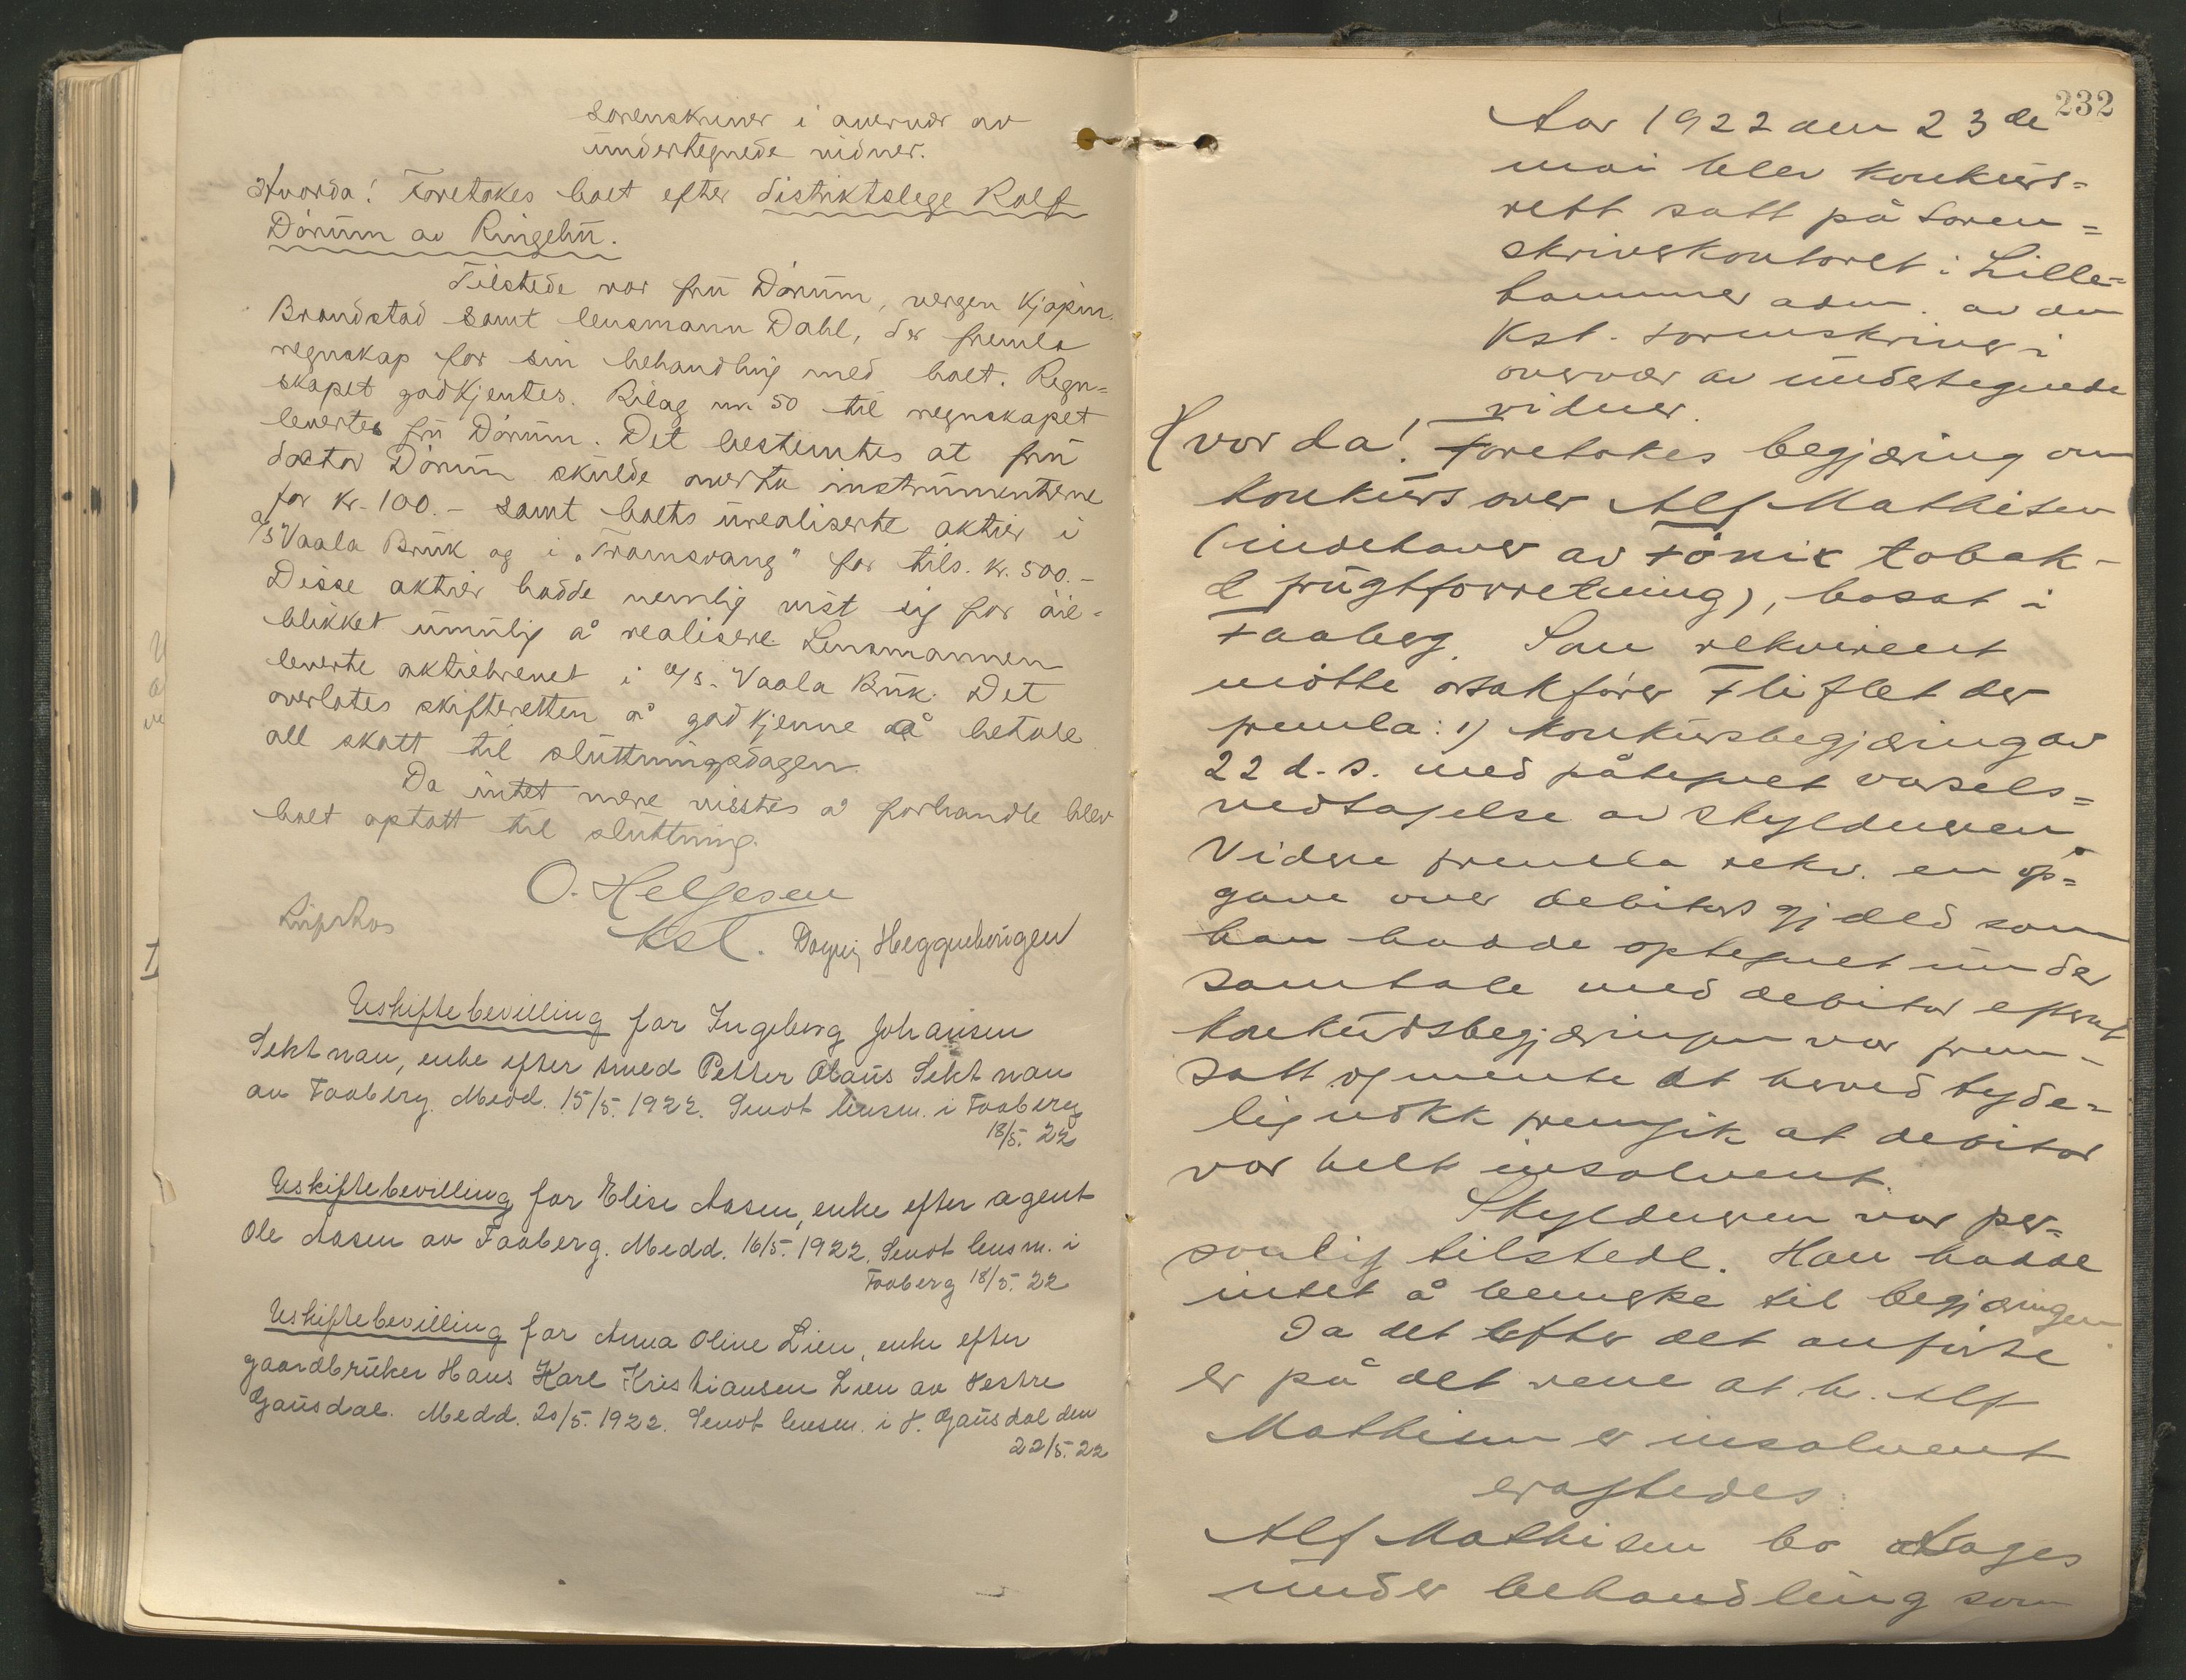 sorenskriver i overvær av
undertegnede vidner.
Hvorda! Foretokes boet efter distriktslege Rolf
Dørum av Ringebu.
Tilstede var fru Dørum, vergen kjøpm.
Brandstad samt lensmann Dahl, der fremla
regnskap for sin behandling med boet. Regn=
skapet godkjentes. Bilag nr. 50 til regnskapet
levertes fru Dørum. Det bestemtes at fru
doktor Dørum skulde overta instrumentene
for kr. 100.- samt boets urealiserte aktier i
a/s Vaala Bruk og i „Tromsvang" for tils. kr. 500.-
Disse aktier hadde nemlig vist sig for øie=
blikket umulig å realisere. Lensmannen
leverte aktiebrevet i a/s. Vaala Bruk. Det
overlotes skifteretten å godkjenne å betale
all skatt til slutningsdagen.
Da intet mere visstes å forhandle blev
boet optatt til slutning.
O. Helgesen
kst. Dagny Heggnehougen
Uskiftebevilling for Ingeborg Johansen
Sektnan, enke efter smed Petter Olaus Sektnan
av Faaberg. Medd. 15/5. 1922. Sendt lensm. i Faaberg
18/5. 22
Uskiftebevilling for Elise Aasen, enke efter agent
Ole Aasen av Faaberg. Medd. 16/5. 1922. Sendt lensm. i
Faaberg 18/5. 22
Uskiftebevilling for Anna Oline Lien, enke efter
gaardbruker Hans Karl Kristiansen Lien av Vestre
Gausdal. Medd. 20/5. 1922. Sendt lensm. i V. Gausdal den
22/5. 22
232
Aar 1922 den 23de
mai blev konkurs=
rett satt på soren=
skriverkontoret i Lille=
hammer adm. av den
kst. sorenskriver i
overvær av undertegnede
vidner.
Hvor da! Foretokes begjæring om
konkurs over Alf Mathisen
(indehaver av Fønix tobak-
& frugtforretning), bosat i
Faaberg. Som rekvirent
møtte orsakfører Fliflet der
fremla: 1) konkursbegjæring av
22 d. s. med påtegnet varsels=
vedtagelse av skyldneren
Videre fremla rekv. en op=
gave over debitors gjæld som
han hadde optegnet under
samtale med debitor efterat
konkursbegjæringen var frem-
satt og mente at herved tyde=
lig nokk fremgik at debitor
var helt insolvent.
Skyldneren var per=
sonlig tilstede. Han hadde
intet å bemerke til begjæringen
Da det efter det anførte
er på det rene at h. Alf
Mathisen er insolvent
eragtedes:
Alf Mathisen bo tages
under behandling som